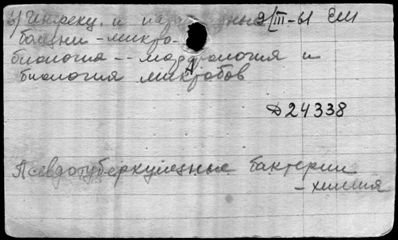 в) Инфекц. и паразитарные 9/III-61 ЕМ
бацни - микро-
биология -- морфология и
биология микробов
Д24338
Псевдотуберкулезные бактерии
- химия